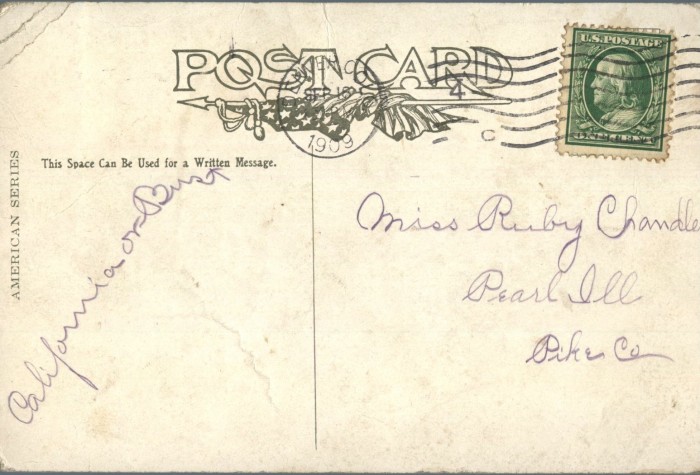 POST CARD
SEP
1909
4
C
U.S. POSTAGE
AMERICAN SERIES
This Space Can Be Used for a Written Message.
California or Bust
Miss Ruby Chandle
Pearl Ill
Pike Co